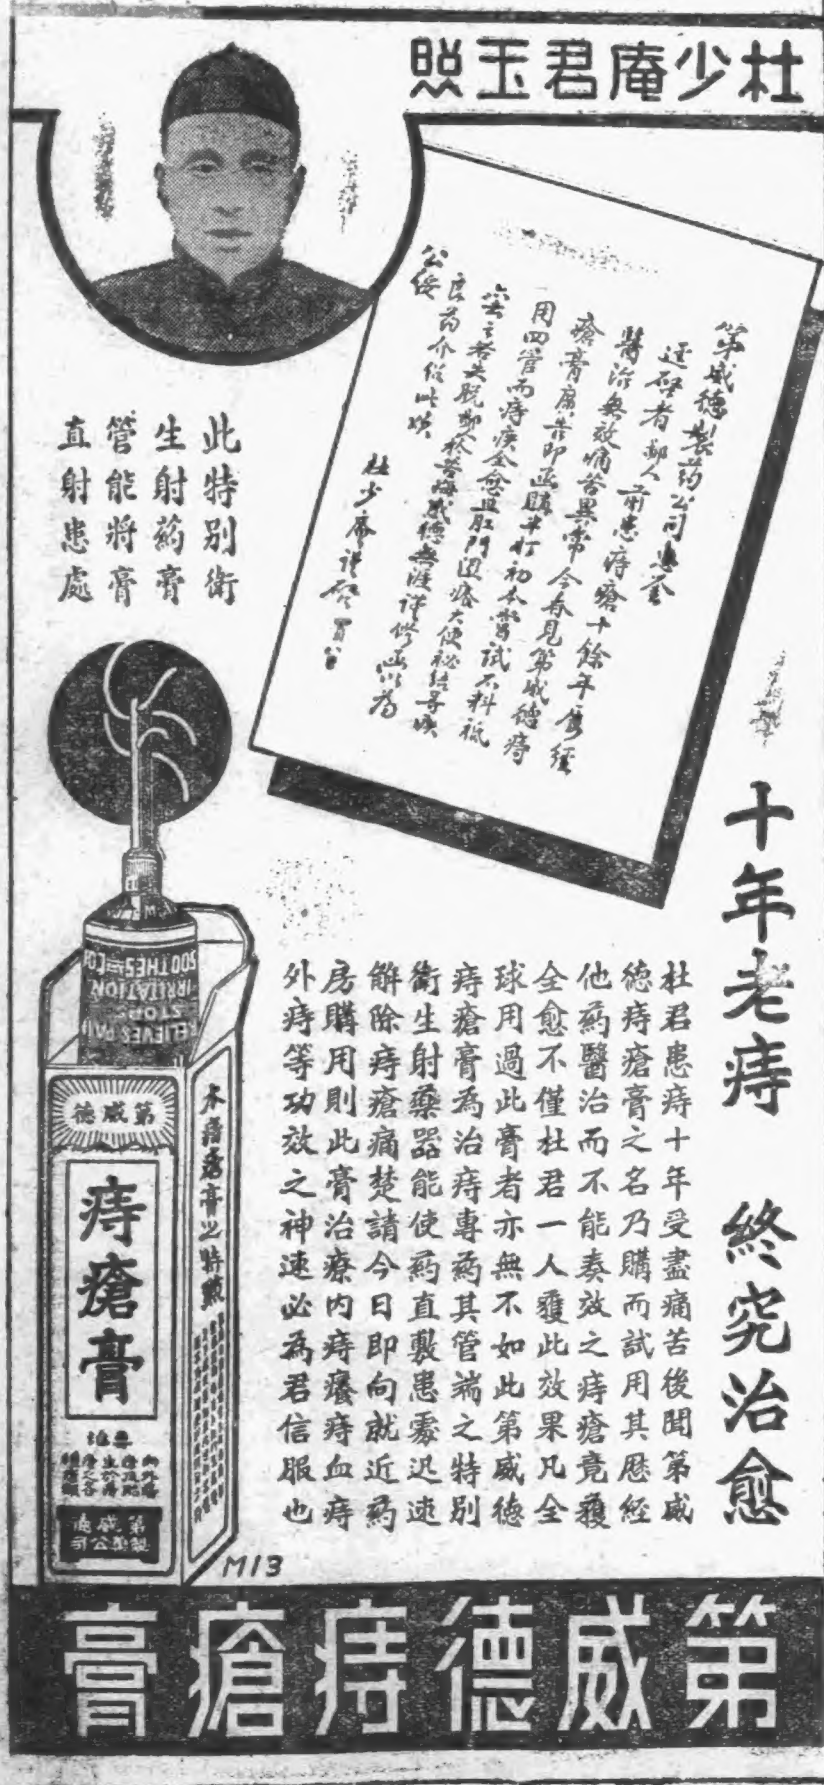 杜少庵君玉照
第威德製药公司惠鉴
逕啓者鄙人前患痔瘡十餘年屢經
醫治無效痛苦異常今春見第威德痔
瘡膏廣告即函購半打初本嘗試不料祗
用四管而痔疾全愈且肛門迴瘡大便祕結等疾
亦若失脫鄙於苦海感德無涯謹修函以為
良药介紹此頌
公綏
杜少庵謹啓
此特别衛
生射药膏
管能將膏
直射患處
十年老痔 終究治愈
杜君患痔十年受盡痛苦後聞第威
德痔瘡膏之名乃購而試用其歷經
他药醫治而不能奏效之痔瘡竟獲
全愈不僅杜君一人獲此效果凡全
球用過此膏者亦無不如此第威德
痔瘡膏為治痔專药其管端之特别
衛生射藥器能使药直敷患處迅速
解除痔瘡痛楚請今日即向就近药
房購用則此膏治療内痔癢痔血痔
外痔等功效之神速必為君信服也
SOOTHES
IRRITATION
STOPS
RELIEVES PAIN
第威德
痔瘡膏
本痔瘡膏之特點
第威德
製藥公司
M13
第威德痔瘡膏